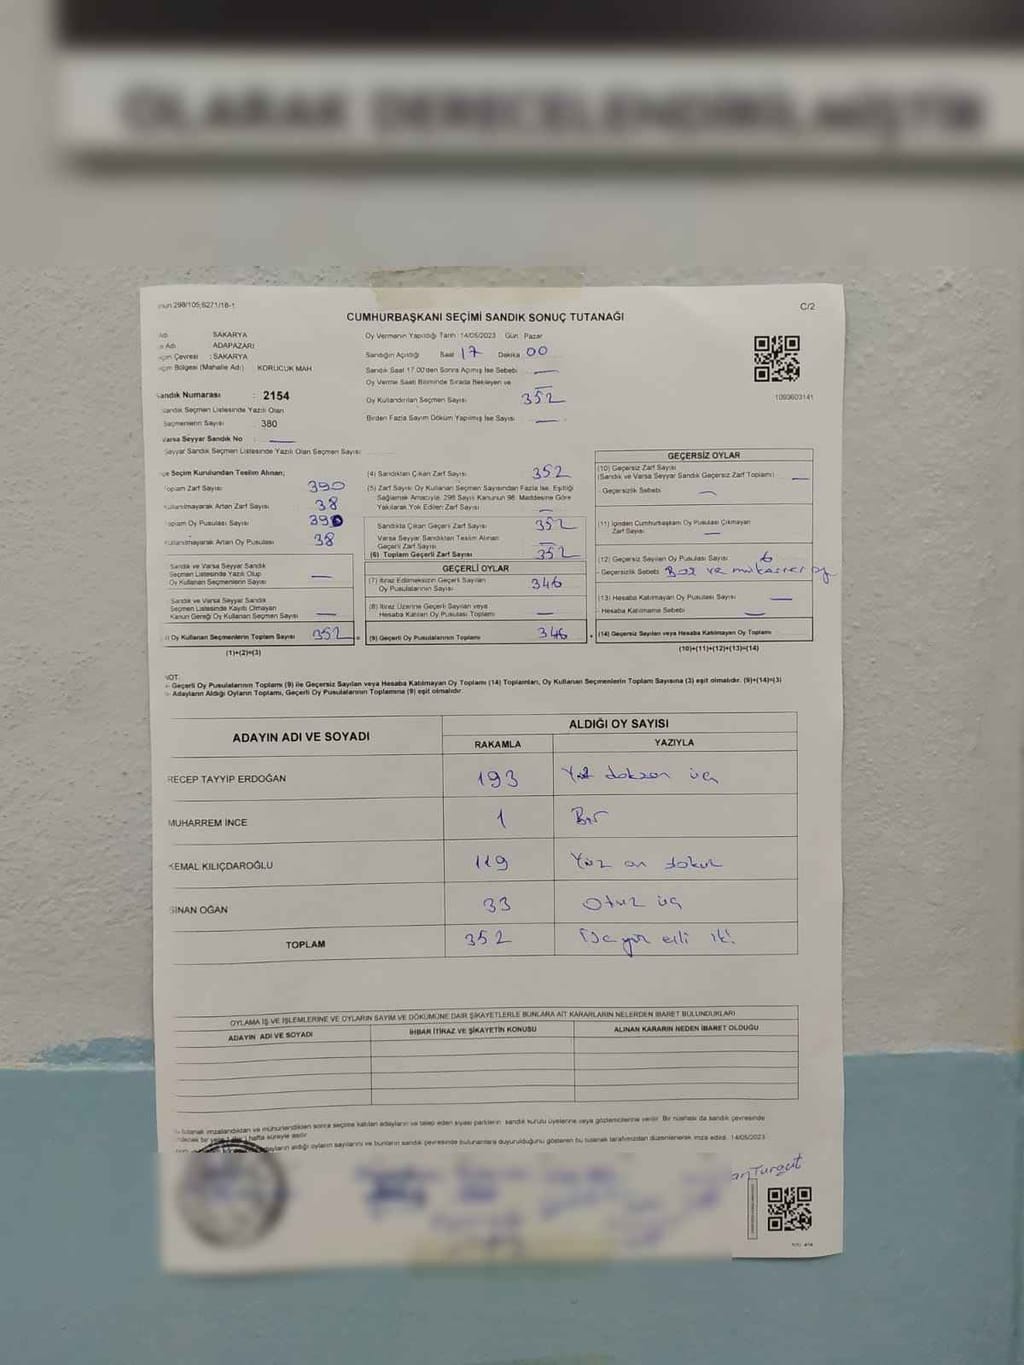 OLARAK DERECELENDİRİLMİŞTİR
298/105;6271/18-1
C/2
CUMHURBAŞKANI SEÇİMİ SANDIK SONUÇ TUTANAĞI
SAKARYA
Adı : ADAPAZARI
Çevresi : SAKARYA
Bölgesi (Mahalle Adı) KORUCUK MAH
Oy Vermenin Yapıldığı Tarih: 14/05/2023 Gün: Pazar
Sandığın Açıldığı Saat 17 Dakika 00
Sandık Saat 17.00'den Sonra Açılmış İse Sebebi —
Oy Verme Saati Bitiminde Sırada Bekleyen ve —
Oy Kullandırılan Seçmen Sayısı 352
Birden Fazla Sayım Döküm Yapılmış İse Sayısı —
1093603141
Sandık Numarası : 2154
Sandık Seçmen Listesinde Yazılı Olan
Seçmenlerin Sayısı : 380
Varsa Seyyar Sandık No : —
Seyyar Sandık Seçmen Listesinde Yazılı Olan Seçmen Sayısı:
Seçim Kurulundan Teslim Alınan;
Toplam Zarf Sayısı 390
Kullanılmayarak Artan Zarf Sayısı 38
Toplam Oy Pusulası Sayısı 390
Kullanılmayarak Artan Oy Pusulası 38
Sandık ve Varsa Seyyar Sandık
Seçmen Listesinde Yazılı Olup
Oy Kullanan Seçmenlerin Sayısı —
Sandık ve Varsa Seyyar Sandık
Seçmen Listesinde Kayıtlı Olmayan
Kanun Gereği Oy Kullanan Seçmen Sayısı —
Oy Kullanan Seçmenlerin Toplam Sayısı 352
(1)+(2)=(3)
(4) Sandıktan Çıkan Zarf Sayısı 352
(5) Zarf Sayısı Oy Kullanan Seçmen Sayısından Fazla İse, Eşitliği
Sağlamak Amacıyla, 298 Sayılı Kanunun 98. Maddesine Göre
Yakılarak Yok Edilen Zarf Sayısı —
Sandıkta Çıkan Geçerli Zarf Sayısı 352
Varsa Seyyar Sandıktan Teslim Alınan
Geçerli Zarf Sayısı —
(6) Toplam Geçerli Zarf Sayısı 352
GEÇERLİ OYLAR
(7) İtiraz Edilmeksizin Geçerli Sayılan
Oy Pusulalarının Sayısı 346
(8) İtiraz Üzerine Geçerli Sayılan veya
Hesaba Katılan Oy Pusulası Toplamı —
(9) Geçerli Oy Pusulalarının Toplamı 346
GEÇERSİZ OYLAR
(10) Geçersiz Zarf Sayısı
(Sandık ve Varsa Seyyar Sandık Geçersiz Zarf Toplamı) —
Geçersizlik Sebebi —
(11) İçinden Cumhurbaşkanı Oy Pusulası Çıkmayan
Zarf Sayısı —
(12) Geçersiz Sayılan Oy Pusulası Sayısı 6
- Geçersizlik Sebebi Boz ve mükerrer oy
(13) Hesaba Katılmayan Oy Pusulası Sayısı —
- Hesaba Katılmama Sebebi —
(14) Geçersiz Sayılan veya Hesaba Katılmayan Oy Toplamı
(10)+(11)+(12)+(13)=(14)
NOT:
- Geçerli Oy Pusulalarının Toplamı (9) ile Geçersiz Sayılan veya Hesaba Katılmayan Oy Toplamı (14) Toplamları, Oy Kullanan Seçmenlerin Toplam Sayısına (3) eşit olmalıdır. (9)+(14)=(3)
- Adayların Aldığı Oyların Toplamı, Geçerli Oy Pusulalarının Toplamına (9) eşit olmalıdır.
ADAYIN ADI VE SOYADI
ALDIĞI OY SAYISI
RAKAMLA YAZIYLA
RECEP TAYYİP ERDOĞAN 193 Yüz doksan üç
MUHARREM İNCE 1 Bir
KEMAL KILIÇDAROĞLU 119 Yüz on dokuz
SİNAN OĞAN 33 Otuz üç
TOPLAM 352 Üç yüz elli iki
OYLAMA İŞ VE İŞLEMLERİNE VE OYLARIN SAYIM VE DÖKÜMÜNE DAİR ŞİKAYETLERLE BUNLARA AİT KARARLARIN NELERDEN İBARET BULUNDUKLARI
ADAYIN ADI VE SOYADI İHBAR İTİRAZ VE ŞİKAYETİN KONUSU ALINAN KARARIN NEDEN İBARET OLDUĞU
tutanak imzalandıktan ve mühürlendikten sonra seçime katılan adayların ve talep eden siyasi partilerin sandık kurulu üyelerine veya gözlemcilerine verilir. Bir nüshası da sandık çevresinde
1 hafta süreyle asılır.
adayların aldığı oyların sayılarını ve bunların sandık çevresinde bulunanlara duyurulduğunu gösteren bu tutanak tarafımızdan düzenlenerek imza edildi. 14/05/2023
Turgut